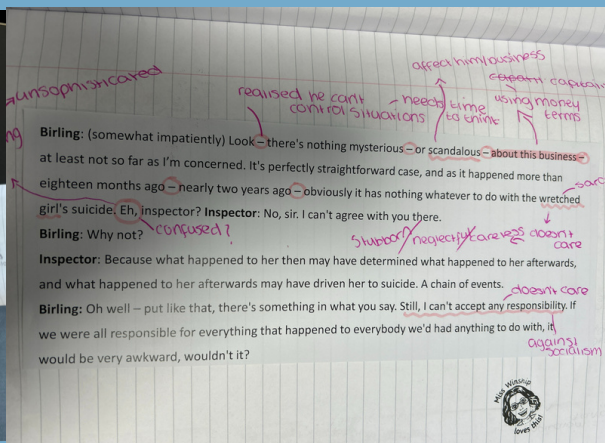 affect him/business
capital
unsophisticated
realised he can't
control situations
- needs time
to think
using money
terms
Birling: (somewhat impatiently) Look – there's nothing mysterious – or scandalous – about this business –
at least not so far as I'm concerned. It's perfectly straightforward case, and as it happened more than
eighteen months ago – nearly two years ago – obviously it has nothing whatever to do with the wretched
girl's suicide. Eh, inspector? Inspector: No, sir. I can't agree with you there.
sarc
confused?
Birling: Why not?
stubborn/neglectful/careless
doesn't
care
Inspector: Because what happened to her then may have determined what happened to her afterwards,
and what happened to her afterwards may have driven her to suicide. A chain of events.
doesn't care
Birling: Oh well – put like that, there's something in what you say. Still, I can't accept any responsibility. If
we were all responsible for everything that happened to everybody we'd had anything to do with, it
would be very awkward, wouldn't it?
against
socialism
Miss Winship
loves this!